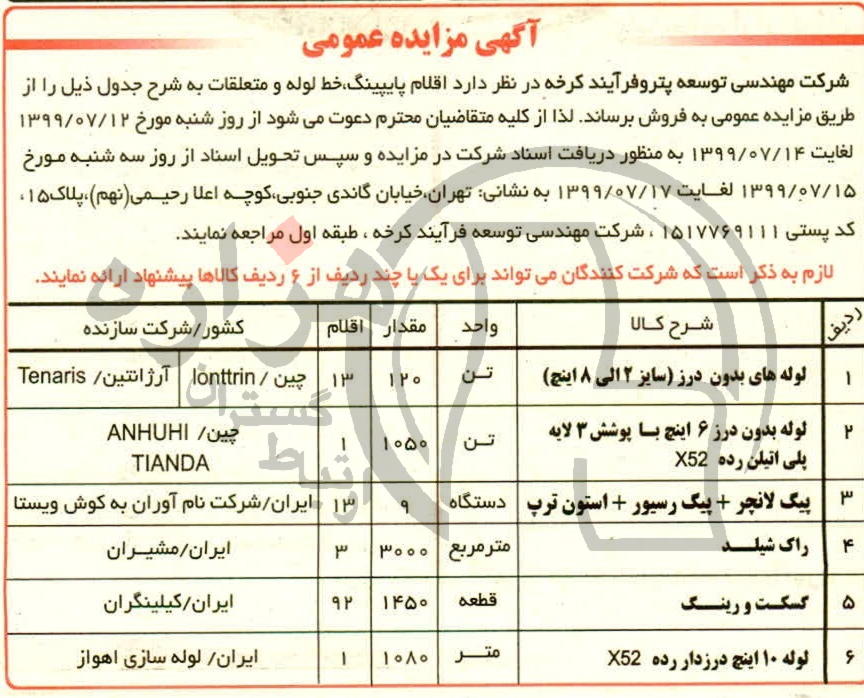 آگهی مزایده عمومی
شرکت مهندسی توسعه پتروفرآیند کرخه در نظر دارد اقلام پایپینگ،خط لوله و متعلقات به شرح جدول ذیل را از
طریق مزایده عمومی به فروش برساند. لذا از کلیه متقاضیان محترم دعوت می شود از روز شنبه مورخ ۱۳۹۹/۰۷/۱۲
لغایت ۱۳۹۹/۰۷/۱۴ به منظور دریافت اسناد شرکت در مزایده و سپس تحویل اسناد از روز سه شنبه مورخ
۱۳۹۹/۰۷/۱۵ لغایت ۱۳۹۹/۰۷/۱۷ به نشانی: تهران،خیابان گاندی جنوبی،کوچه اعلا رحیمی(نهم)،پلاک۱۵،
کد پستی ۱۵۱۷۷۶۹۱۱۱ ، شرکت مهندسی توسعه فرآیند کرخه ، طبقه اول مراجعه نمایند.
لازم به ذکر است که شرکت کنندگان می تواند برای یک یا چند ردیف از ۶ ردیف کالاها پیشنهاد ارائه نمایند.
ردیف شرح کالا واحد مقدار اقلام کشور/شرکت سازنده
۱ لوله های بدون درز (سایز ۲ الی ۸ اینچ) تن ۱۲۰ ۱۳ چین / lonttrin آرژانتین/ Tenaris
۲ لوله بدون درز ۶ اینچ با پوشش ۳ لایه پلی اتیلن رده X52 تن ۱۰۵۰ ۱ چین/ ANHUHI TIANDA
۳ پیگ لانچر + پیگ رسیور + استون ترپ دستگاه ۹ ۱۳ ایران/شرکت نام آوران به کوش ویستا
۴ راک شیلد مترمربع ۳۰۰۰ ۳ ایران/مشیران
۵ گسکت و رینگ قطعه ۱۴۵۰ ۹۲ ایران/کیلینگران
۶ لوله ۱۰ اینچ درزدار رده X52 متر ۱۰۸۰ ۱ ایران/ لوله سازی اهواز
هزاره
گستران
ارتباط